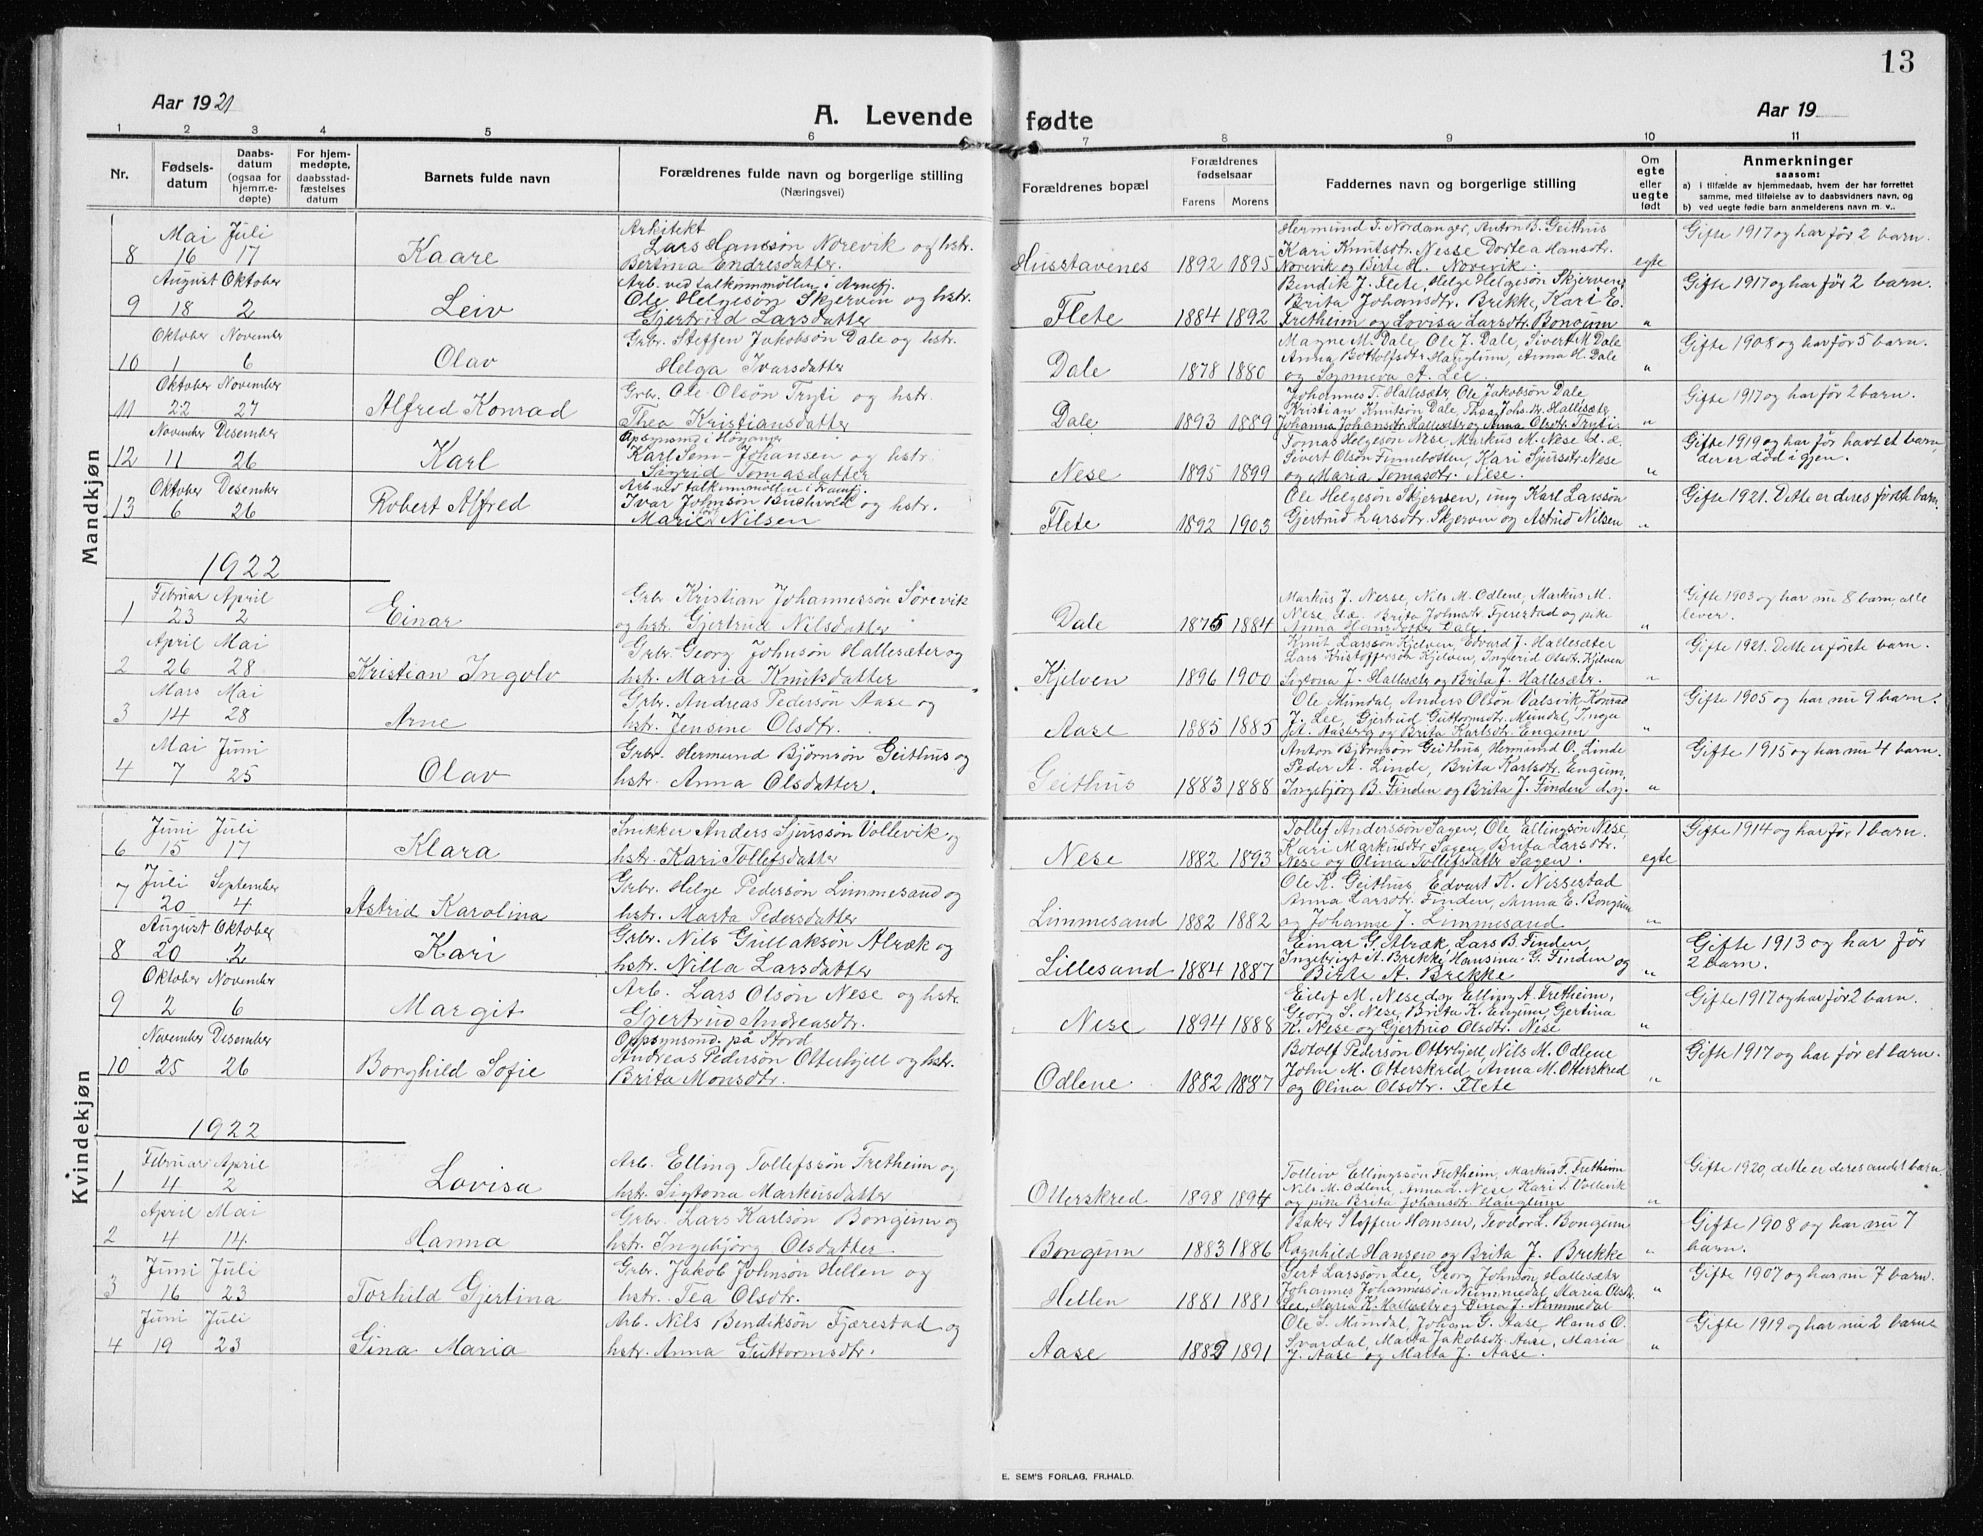 13
Aar 1921
A. Levende fødte
Aar 19
1 2 3 4 5 6 7 8 9 10 11
Nr.
Fødsels-
datum
Daabs-
datum
(ogsaa for
hjemme-
døpte)
For hjem-
medøpte,
daabsstad-
fæstelses
datum
Barnets fulde navn
Forældrenes fulde navn og borgerlige stilling
(Næringsvei)
Forældrenes bopæl
Forældrenes
fødselsaar
Farens Morens
Faddernes navn og borgerlige stilling
Om
egte
eller
uegte
født
Anmerkninger
saasom:
a) i tilfælde av hjemmedaab, hvem der har forrettet
samme, med tilføielse av to daabsvidners navn, og
b) ved uegte fødte barn anmelderens navn m. v..
Mandkjøn
8 Mai 16 Juli 17 Kaare
Arkitekt
Lars Hansøn Norevik og hstr.
Bertina Endresdatter.
Husstavenes 1892 1895
Hermund T. Nordanger, Anton B. Geithus
Kari Knutsdtr. Nesse Dortea Hansdtr.
Norevik og Birte H. Norevik.
egte
Gifte 1917 og har før 2 barn.
9 August 18 Oktober 2 Leiv
Arb. ved talkummøllen i Arnefj.
Ole Helgesøn Skjerven og hstr.
Gjertrud Larsdatter
Flete 1884 1892
Bendik J. Flete, Helge Helgesøn Skjerven,
Brita Johansdtr. Brekke, Kari E.
Fretheim og Lovisa Larsdtr. Bongum
"
Gifte 1917 og har før 2 barn.
10 Oktober 1 November 6 Olav
Grbr. Steffen Jakobsøn Dale og hstr.
Helga Ivarsdatter
Dale 1878 1880
Magne M. Dale, Ole J. Dale, Sivert M. Dale
Anna Bottolfsdtr Hauglum, Anna H. Dale
og Synneva A. Lee.
"
Gifte 1908 og har før 5 barn.
11 Oktober 22 November 27 Alfred Konrad
Grbr. Ole Olsøn Tryti og hstr.
Thea Kristiansdatter
Dale 1893 1889
Johannes T. Hallesæter, Ole Jakobsøn Dale,
Kristian Knutsøn Dale, Thea Johs.dtr. Hallesæter
Johanna Johansdtr Hallesæter og Anna Olsdtr. Tryti.
"
Gifte 1917 og har før 2 barn.
12 November 11 Desember 26 Karl
Opsynsmd i Høyanger
Karl Sem-Johansen og hstr.
Sigrid Tomasdatter
Nese 1895 1899
Tomas Helgesøn Nese, Markus M. Nese d. æ.
Sivert Olsøn Finnebotten, Kari Sjursdtr. Nese
og Maria Tomasdtr. Nese.
"
Gifte 1919 og har før havt et barn,
der er død igjen.
13 Oktober 6 Desember 26 Robert Alfred
Arb. ved talkummøllen i Framfj.
Ivar Johnsøn Buchvold og hstr.
Marie Nilsen
Flete 1892 1903
Ole Helgesøn Skjerven, ing Karl Larssøn
Gjertrud Larsdtr. Skjerven og Astrid Nilsen
"
Gifte 1921. Dette er deres første barn.
1922
1 Februar 23 April 2 Einar
Grbr. Kristian Johannessøn Sørevik
og hstr. Gjertrud Nilsdatter
Dale 1875 1884
Markus J. Nesse, Nils M. Odlene, Markus M.
Nese d.æ. Brita Johnsdtr. Fjærestad og pike
Anna Hansdatter Dale
"
Gifte 1903 og har nu 8 barn, alle
lever.
2 April 26 Mai 28 Kristian Ingolv
Grbr. Georg Johnsøn Hallesæter og
hstr. Maria Knutsdatter
Kjelven 1896 1900
Knut Larssøn Kjelven, Edvard J. Hallesæter
Lars Kristoffersøn Kjelven, Ingerid Olsdtr. Kjelven
Sigtona J. Hallesætr og Brita J. Hallesætr.
"
Gifte 1921. Dette er første barn.
3 Mars 14 Mai 28 Arne
Grbr. Andreas Pedersøn Aase og
hstr. Jensine Olsdtr.
Aase 1885 1885
Ole Mundal, Anders Olsøn Valsvik, Konrad
J. Lee, Gjertrud Guttormsdtr. Mundal, Inga
Jet. Aaberg og Brita Karlsdtr. Engum
"
Gifte 1905 og har nu 9 barn.
4 Mai 7 Juni 25 Olav
Grbr. Hermund Bjørnsøn Geithus og
hstr. Anna Olsdatter.
Geithus 1883 1888
Anton Bjørnsøn Geithus, Hermund O. Linde
Peder A. Linde, Brita Karlsdtr. Engum,
Ingebjørg B. Finden og Brita J. Finden d.y.
"
Gifte 1915 og har nu 4 barn.
Kvindekjøn
6 Juni 15 Juli 17 Klara
Snikker Anders Sjurssøn Vollevik og
hstr. Kari Tollefsdatter
Nese 1882 1893
Tollef Anderssøn Sagen, Ole Ellingsøn Nese,
Kari Markusdtr Sagen, Brita Larsdtr.
Nese og Olina Tollefsdatter Sagen.
egte
Gifte 1914 og har før 1 barn.
7 Juli 20 September 4 Astrid Karolina
Grbr. Helge Pedersøn Limmesand og
hstr. Marta Pedersdatter
Limmesand 1882 1882
Ole R. Geithus, Edvart K. Nissestad
Anna Larsdtr. Finden, Anna E. Bongum
og Johanne J. Limmesand.
"
8 August 20 Oktober 2 Kari
Grbr. Nils Gullaksøn Alræk og
hstr. Nilla Larsdatter
Lillesand 1884 1887
Einar G. Alræk, Lars B. Finden,
Ingebrigt A. Brekke, Hansina G. Finden og
Birte A. Brekke
"
Gifte 1913 og har før
2 barn.
9 Oktober 2 November 6 Margit
Arb. Lars Olsøn Nese og hstr
Gjertrud Andreasdtr.
Nese 1894 1888
Eilef M. Nese d.y. Elling A. Fretheim,
Georg S. Nese, Brita K. Engum, Gjertina
H. Nese og Gjertrud Olsdtr. Nese
"
Gifte 1917 og har før 2 barn.
10 November 25 Desember 26 Borghild Sofie
Oppsynsmd. på Stord
Andreas Pedersøn Otterhjell og hstr.
Brita Monsdtr.
Odlene 1882 1887
Botolf Pedersøn Otterhjell Nils M. Odlene
John M. Otterskred, Anna M. Otterskred
og Olina Olsdtr. Flete
"
Gifte 1917 og har før et barn.
1922
1 Februar 4 April 2 Lovisa
Arb. Elling Tollefssøn Fretheim og
hstr. Sigtona Markusdatter
Otterskred 1898 1894
Tolleiv Ellingssøn Fretheim, Markus T. Fretheim
Nils M. Odlene, Anna L. Nese Kari T. Vollevik
og pike Brita Johansdtr. Hauglum
"
Gifte 1920, dette er deres andet barn.
2 April 4 Mai 14. Hanna
Grbr. Lars Karlsøn Bongum og
hstr. Ingebjørg Olsdatter
Bongum 1883 1886
Baker Steffen Hansen, Teodor L. Bongum
Ragnhild Hansen og Brita J. Brekke
"
Gifte 1908 og har nu 7
barn.
3 Juni 16 Juli 23 Torhild Gjertina
Grbr. Jakob Johnsøn Hellen og
hstr. Sea Olsdtr.
Hellen 1881 1881
Gert Larssøn Lee, Georg Johnsøn Hallesæter
Johannes Johannessøn Nummedal Maria Olsdtr.
Lee, Maria K. Hallesætr og Dina J. Nummedal
"
Gifte 1907 og har nu 7 barn.
4 Juni 19 Juli 23 Gina Maria
Arb. Nils Bendiksøn Fjærestad og
hstr. Anna Guttormsdtr.
Aase 1889 1891
Ole S. Mundal, Johan G. Aase, Hans O.
Svardal, Marta Jakobsdtr. Aase, Maria
J. Aase og Marta J. Aase.
"
Gifte 1919 og har nu 2 barn
E. SEM'S FORLAG, FR.HALD.